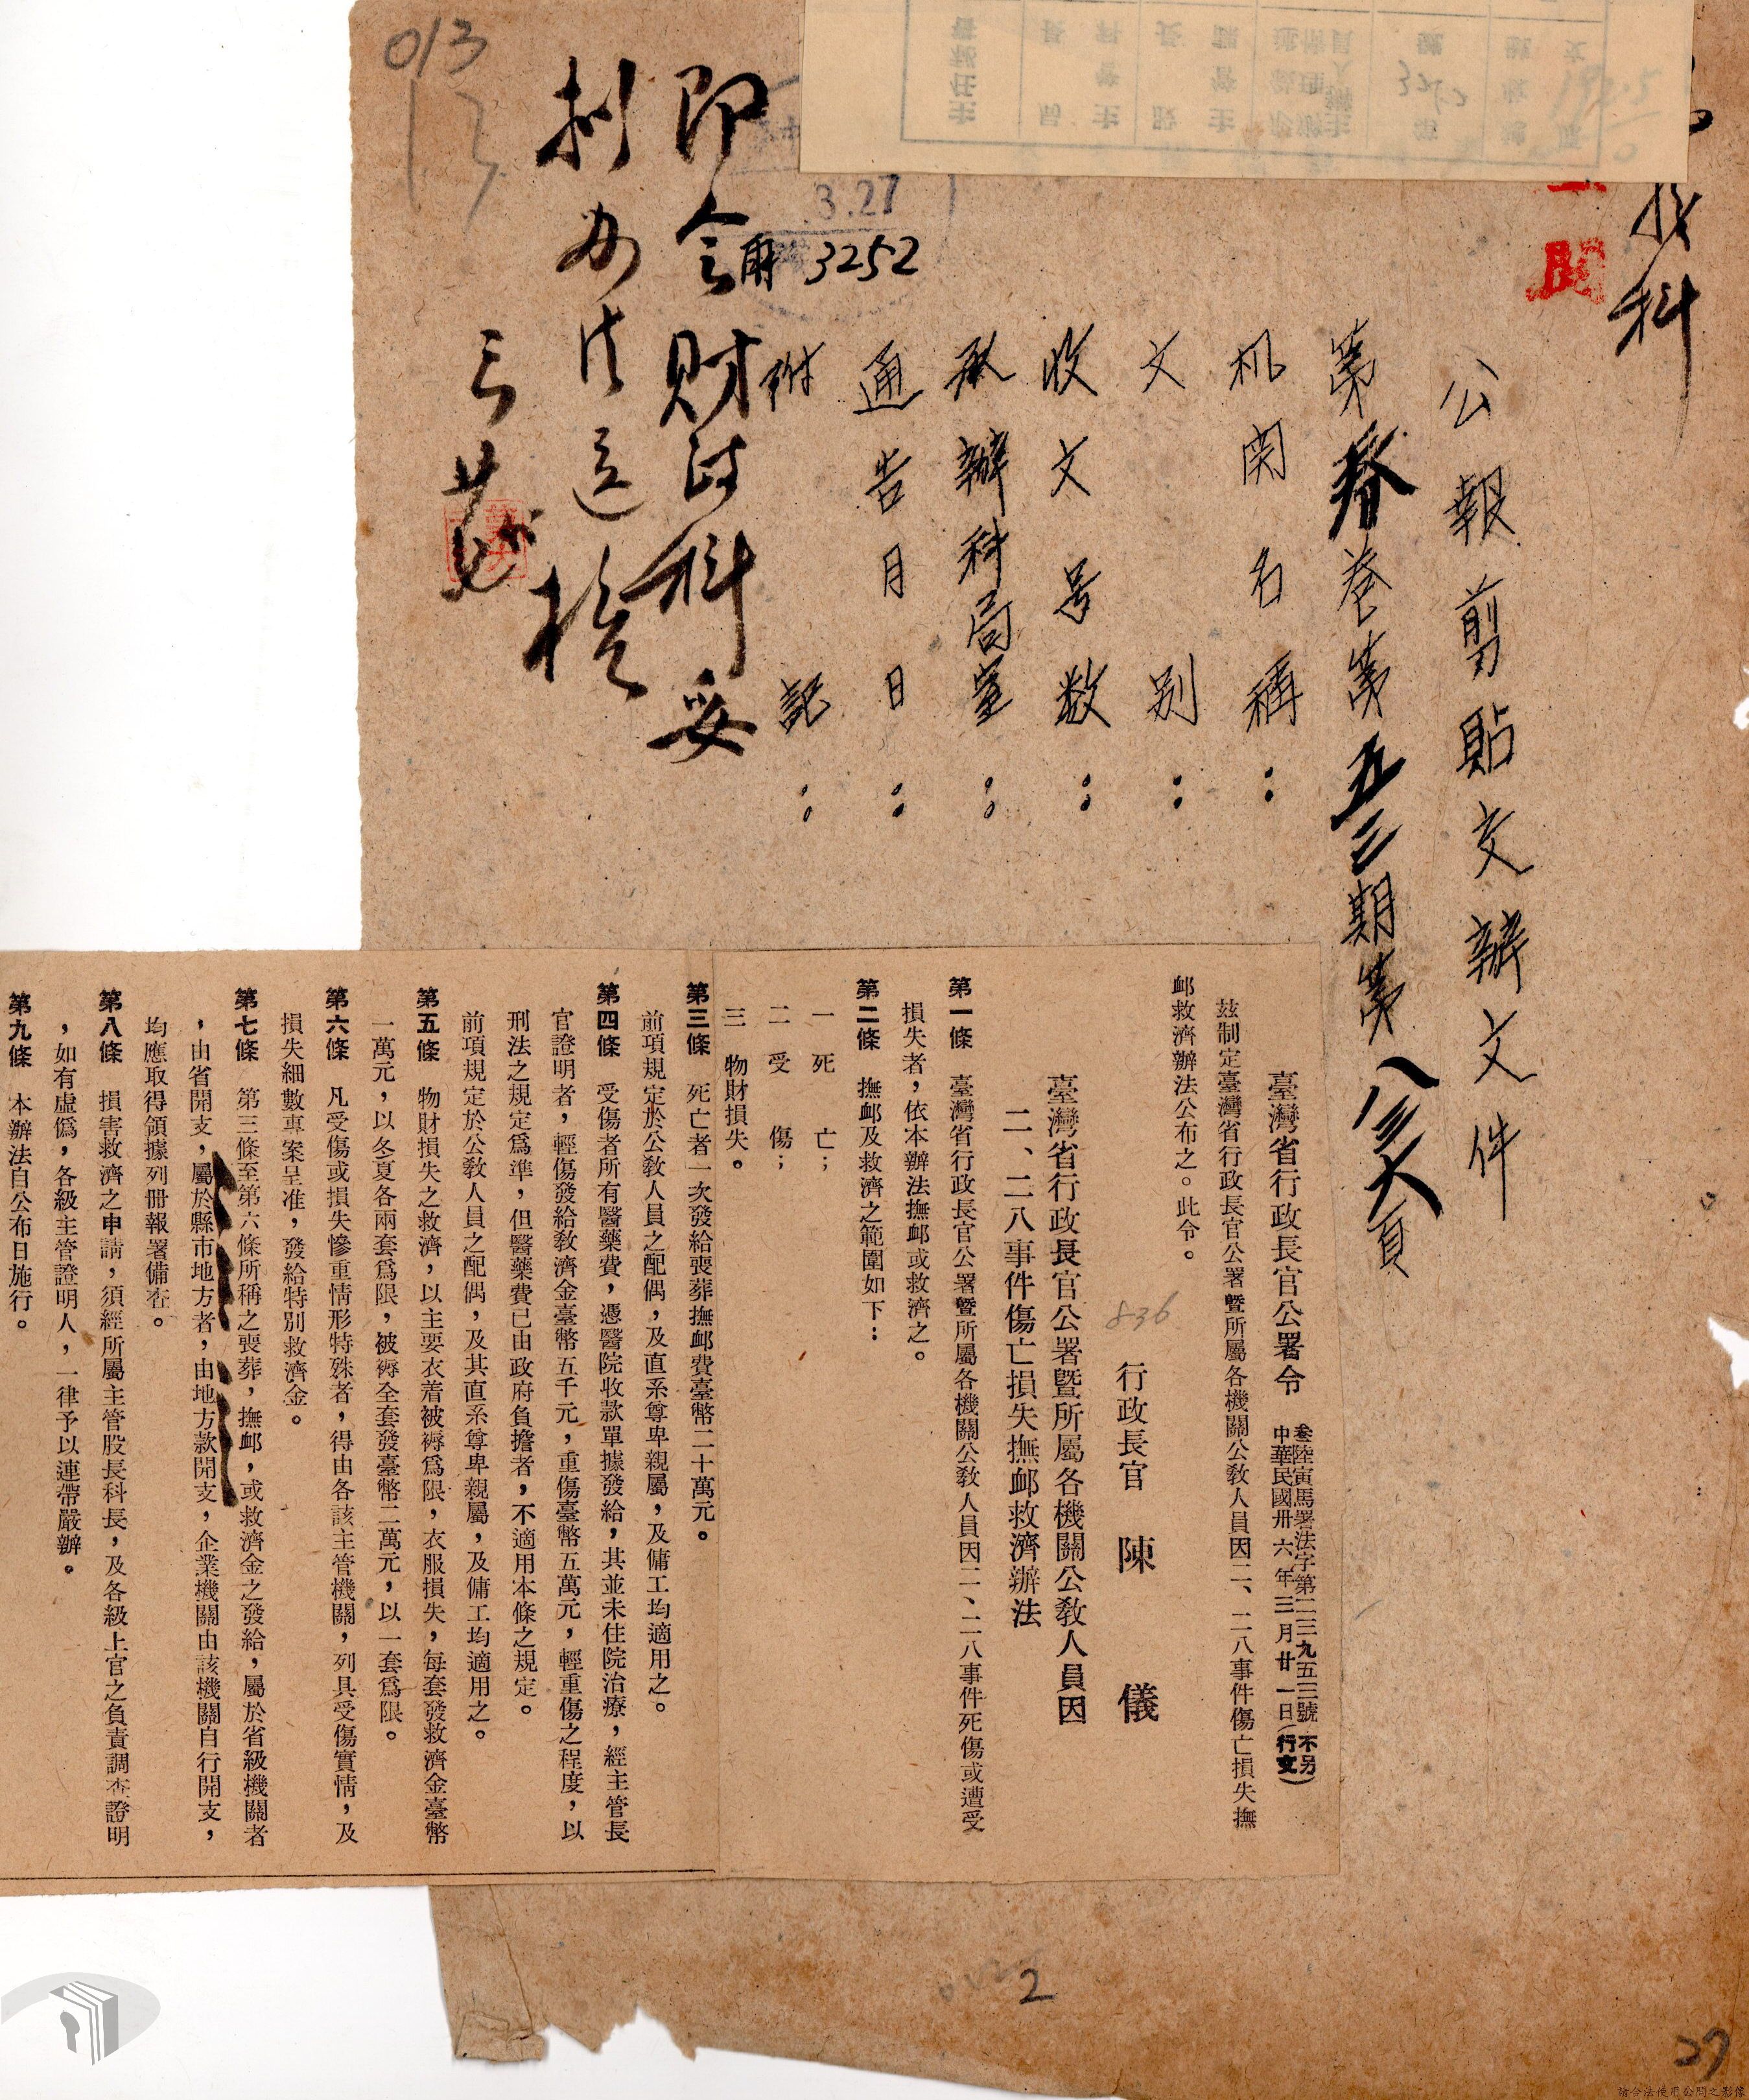 公報剪貼交辦文件
第叁卷第五三期第八三六頁
机関名稱：
文別：
收文号数：
承辦科局室：
通告月日：
附記：
即令財政科妥
3.27
3252
013
13
臺灣省行政長官公署令
叁陸寅馬署法字第二三九五三號
中華民國卅六年三月廿一日
（不另行文）
茲制定臺灣省行政長官公署暨所屬各機關公教人員因二、二八事件傷亡損失撫
卹救濟辦法公布之。此令。
行政長官　陳　儀
836
臺灣省行政長官公署暨所屬各機關公教人員因
二、二八事件傷亡損失撫卹救濟辦法
第一條　臺灣省行政長官公署暨所屬各機關公教人員因二、二八事件死傷或遭受
損失者，依本辦法撫卹或救濟之。
第二條　撫卹及救濟之範圍如下：
一　死　亡；
二　受　傷；
三　物財損失。
第三條　死亡者一次發給喪葬撫卹費臺幣二十萬元。
前項規定於公教人員之配偶，及直系尊卑親屬，及傭工均適用之。
第四條　受傷者所有醫藥費，憑醫院收款單據發給，其並未住院治療，經主管長
官證明者，輕傷發給救濟金臺幣五千元，重傷臺幣五萬元，輕重傷之程度，以
刑法之規定爲準，但醫藥費已由政府負擔者，不適用本條之規定。
前項規定於公教人員之配偶，及其直系尊卑親屬，及傭工均適用之。
第五條　物財損失之救濟，以主要衣着被褥爲限，衣服損失，每套發救濟金臺幣
一萬元，以冬夏各兩套爲限，被褥全套發臺幣二萬元，以一套爲限。
第六條　凡受傷或損失慘重情形特殊者，得由各該主管機關，列具受傷實情，及
損失細數專案呈准，發給特別救濟金。
第七條　第三條至第六條所稱之喪葬，撫卹，或救濟金之發給，屬於省級機關者
，由省開支，屬於縣市地方者，由地方款開支，企業機關由該機關自行開支，
均應取得領據列冊報署備查。
第八條　損害救濟之申請，須經所屬主管股長科長，及各級上官之負責調查證明
，如有虛僞，各級主管證明人，一律予以連帶嚴辦。
第九條　本辦法自公布日施行。
2
27
請合法使用公開之影像